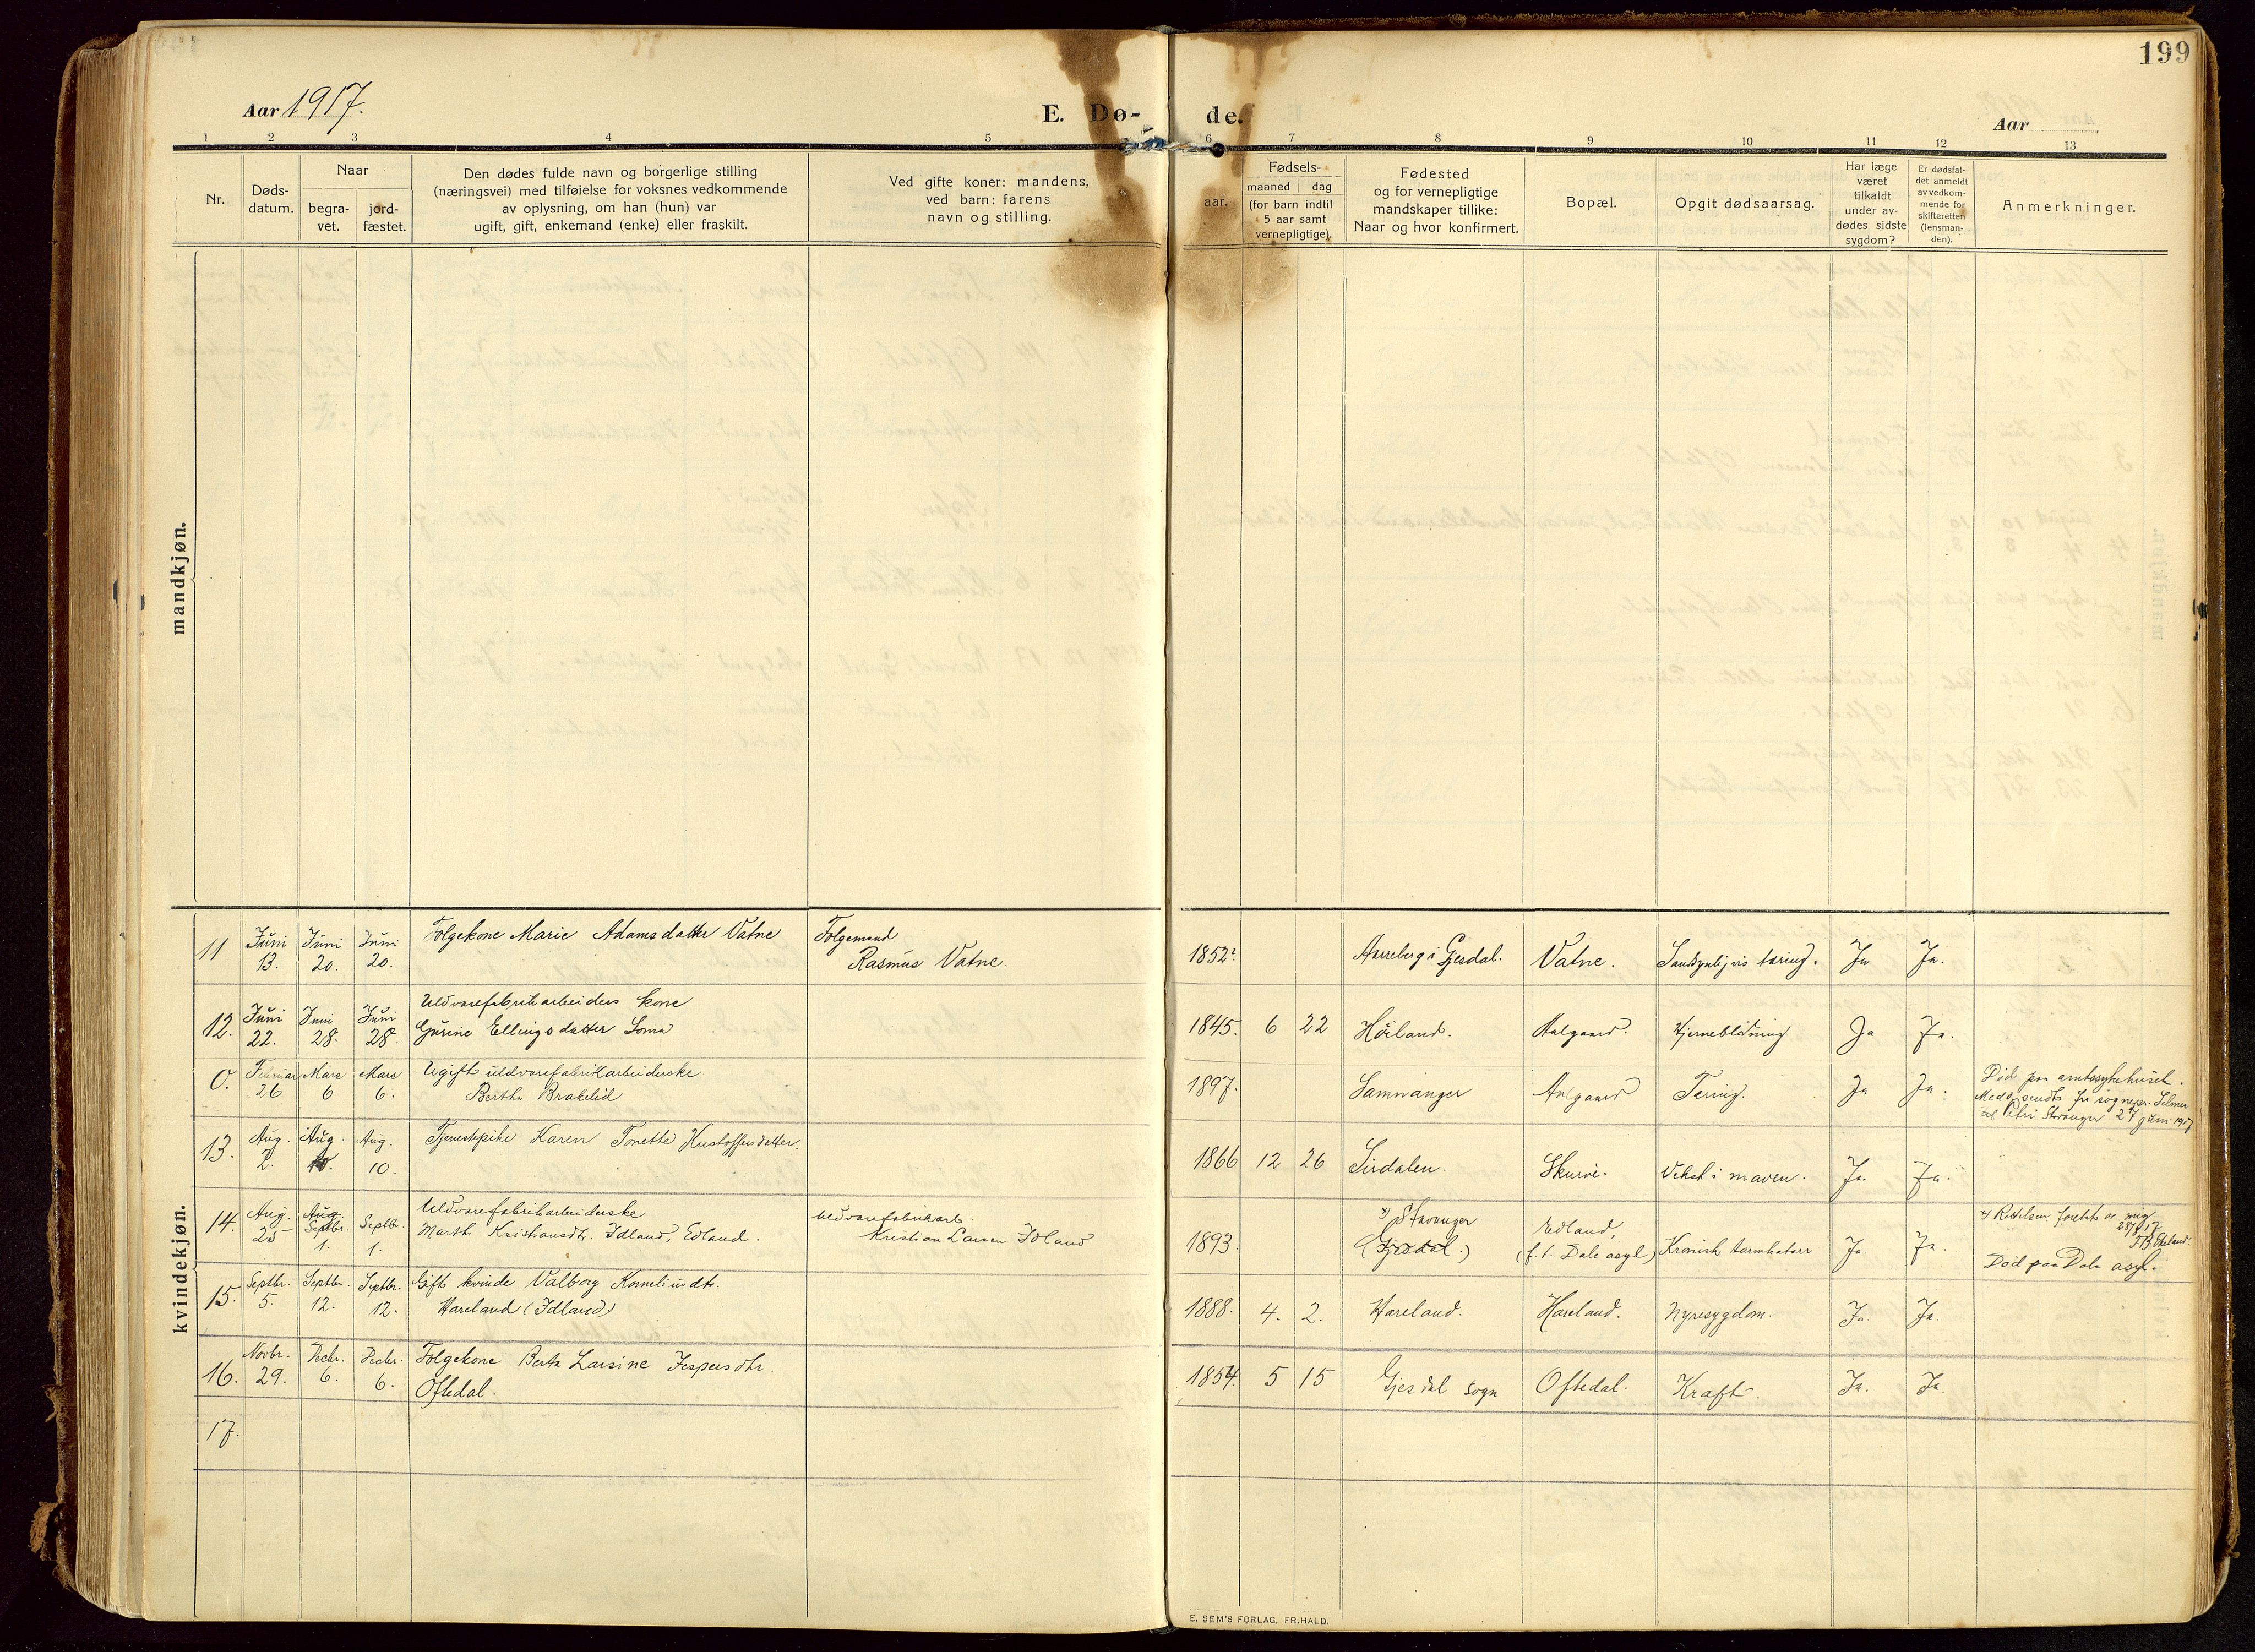 199
Aar 1917.
E. Dø-
de.
Aar
1 2 3 4 5 6 7 8 9 10 11 12 13
Nr.
Døds-
datum.
Naar
begra-
vet.
jord-
fæstet.
Den dødes fulde navn og borgerlige stilling
(næringsvei) med tilføielse for voksnes vedkommende
av oplysning, om han (hun) var
ugift, gift, enkemand (enke) eller fraskilt.
Ved gifte koner: mandens,
ved barn: farens
navn og stilling.
aar.
Fødsels-
maaned dag
(for barn indtil
5 aar samt
vernepligtige).
Fødested
og for vernepligtige
mandskaper tillike:
Naar og hvor konfirmert.
Bopæl.
Opgit dødsaarsag.
Har læge
været
tilkaldt
under av-
dødes sidste
sygdom?
Er dødsfal-
det anmeldt
av vedkom-
mende for
skifteretten
(lensman-
den).
Anmerkninger.
mandkjøn.
kvindekjøn.
11 Juni 13. Juni 20. Juni 20. Folgekone Marie Adamsdatter Vatne
Folgemand
Rasmus Vatne.
1852? Aarreberg i Gjesdal. Vatne. Sandsynligvis tæring. Ja Ja.
12. Juni 22. Juni 28. Juni 28. Uldvarefabrikarbeiders kone
Gurine Ellingsdatter Soma
1845. 6 22 Høiland. Aalgaard. Hjerneblødning Ja Ja.
0. Februar 26 Mars 6 Mars 6. Ugift uldvarefabrikarbeiderske
Bertha Brakelid
1897. Samnanger Aalgaard Tering. Ja Ja.
Død paa amtssykehuset.
Medd. sendt fra sognepr. Selmer
til Petri Stavanger 27 juni 1917
13. Aug. 2. Aug. 10. Aug. 10. Tjenestepike Karen Tonette Kristoffersdatter.
1866 12 26 Sirdalen. Skurve. Vekst i maven. Ja. Ja.
14. Aug. 25 Aug. Septbr. 1. Septbr. 1. Uldvarefabrikarbeiderske
Marth Kristiansdtr. Idland, Edland.
Uldvarefabrikarb.
Kristian Larsen Idland
1893. x) Stavanger
(Gjesdal.)
Edland,
(f. t. Dale asyl) Kronisk tarmkatarr Ja Ja.
x) Rettelsen foretat av mig
Død paa Dale asyl.
15. Septbr. 5. Septbr. 12. Septbr. 12. Gift kvinde Valborg Korneliusdtr.
Hareland (Idland)
1888. 4. 2. Hareland. Hareland. Nyresygdom. Ja. Ja.
16. Novbr. 29. Decbr. 6. Decbr. 6. Folgekone Berta Larsine Jespersdtr.
Oftedal.
1854. 5 15 Gjesdal sogn Oftedal. Kræft. Ja. Ja.
17.
E. SEM'S FORLAG, FR.HALD.